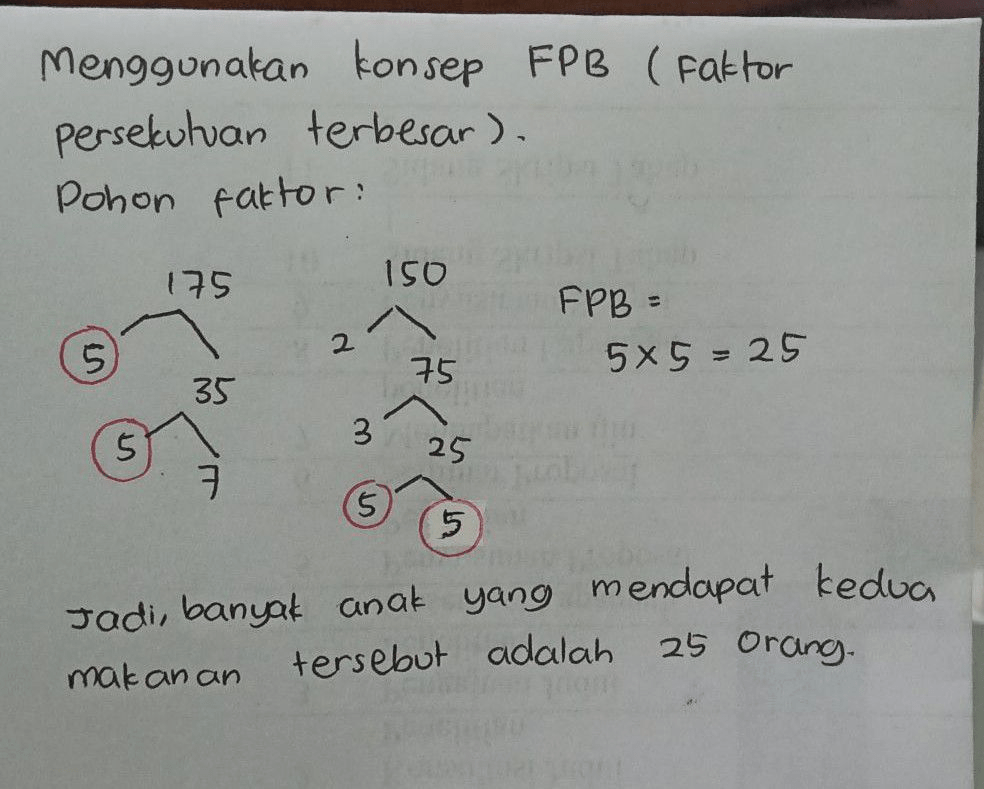 Menggunakan konsep FPB (Faktor
persekutuan terbesar).
Pohon faktor:
175
5
35
5
7
150
2
75
3
25
5
5
FPB =
5 x 5 = 25
Jadi, banyak anak yang mendapat kedua
makanan tersebut adalah 25 orang.